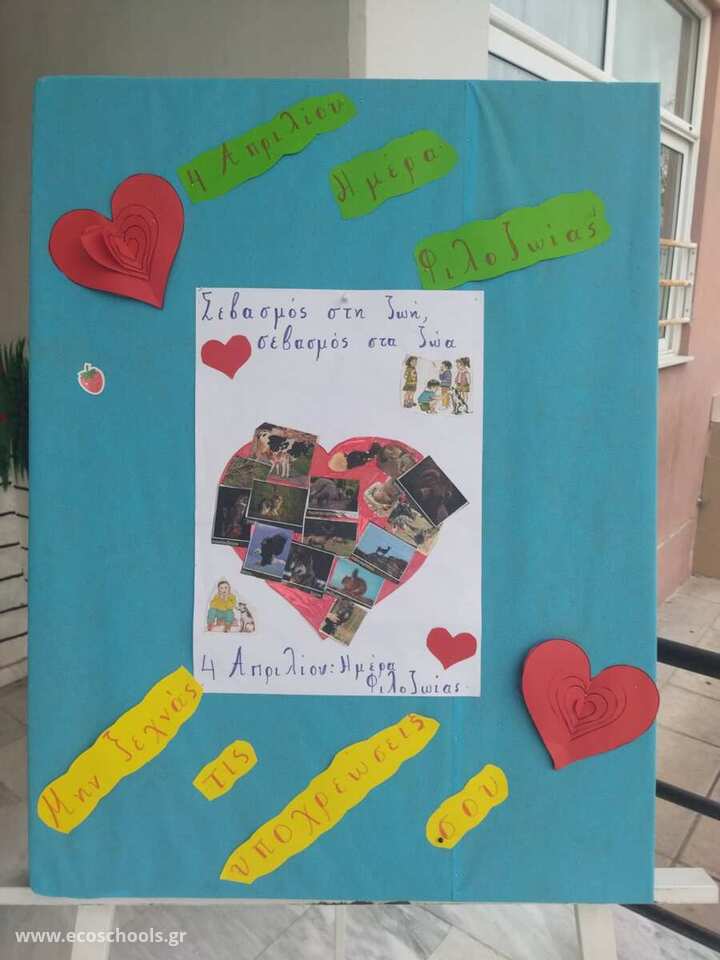 4 Απριλίου
Ημέρα
Φιλοζωίας
Σεβασμός στη ζωή,
σεβασμός στα ζώα
4 Απριλίου: Ημέρα
Φιλοζωίας.
Μην ξεχνάς
τις
υποχρεώσεις
σου
www.ecoschools.gr